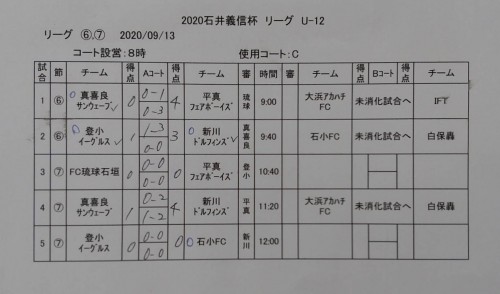 2020石井義信杯 リーグ U-12
リーグ ⑥,⑦ 2020/09/13
コート設営:8時 使用コート:C
試合 節 チーム 得点 Aコート 得点 チーム 審 時間 審 Bコート 審 チーム
1 ⑥ 真喜良サンウェーブ 0 0-1 0-3 4 平真フェアボーイズ 琉球 9:00 大浜アカハチFC 未消化試合へ IFT
2 ⑥ 登小イーグルス 1 1-3 0-0 3 新川ドルフィンズ 真喜良 9:40 石小FC 未消化試合へ 白保轟
3 ⑦ FC琉球石垣 0 0-0 0-0 0 平真フェアボーイズ 登小 10:40
4 ⑦ 真喜良サンウェーブ 1 0-2 1-2 4 新川ドルフィンズ 平真 11:20 大浜アカハチFC 未消化試合へ 白保轟
5 ⑦ 登小イーグルス 0 0-0 0-0 0 石小FC 新川 12:00